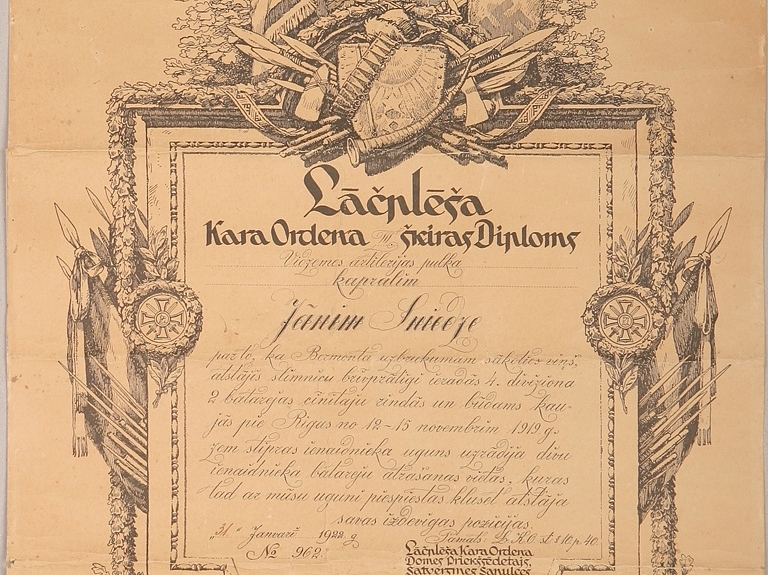 Lāčplēša
Kara Ordena III šķiras Diploms
Vidzemes artilērijas pulka
kaprālim
Jānim Sniedze
par to, ka Bermonta uzbrukumam sākoties viņš,
atstājis slimnīcu brīvprātīgi ieradās 4. diviziona
2. batarejas cīnītāju rindās un būdams kau-
jās pie Rīgas no 12-15 novembrim 1919 g.
zem stipras ienaidnieka uguns uzrādīja divu
ienaidnieka batareju atrašanas vietas, kuras
tad ar mūsu uguni piespiestas klusēt atstāja
savas izdevīgas pozicijas.
"31" Janvarī 1922 g. Pamats: L.K.O. st. § 10 p. 40
№ 962
Lāčplēša Kara Ordena
Domes Priekšsēdētajs,
Satversmes Sapulces